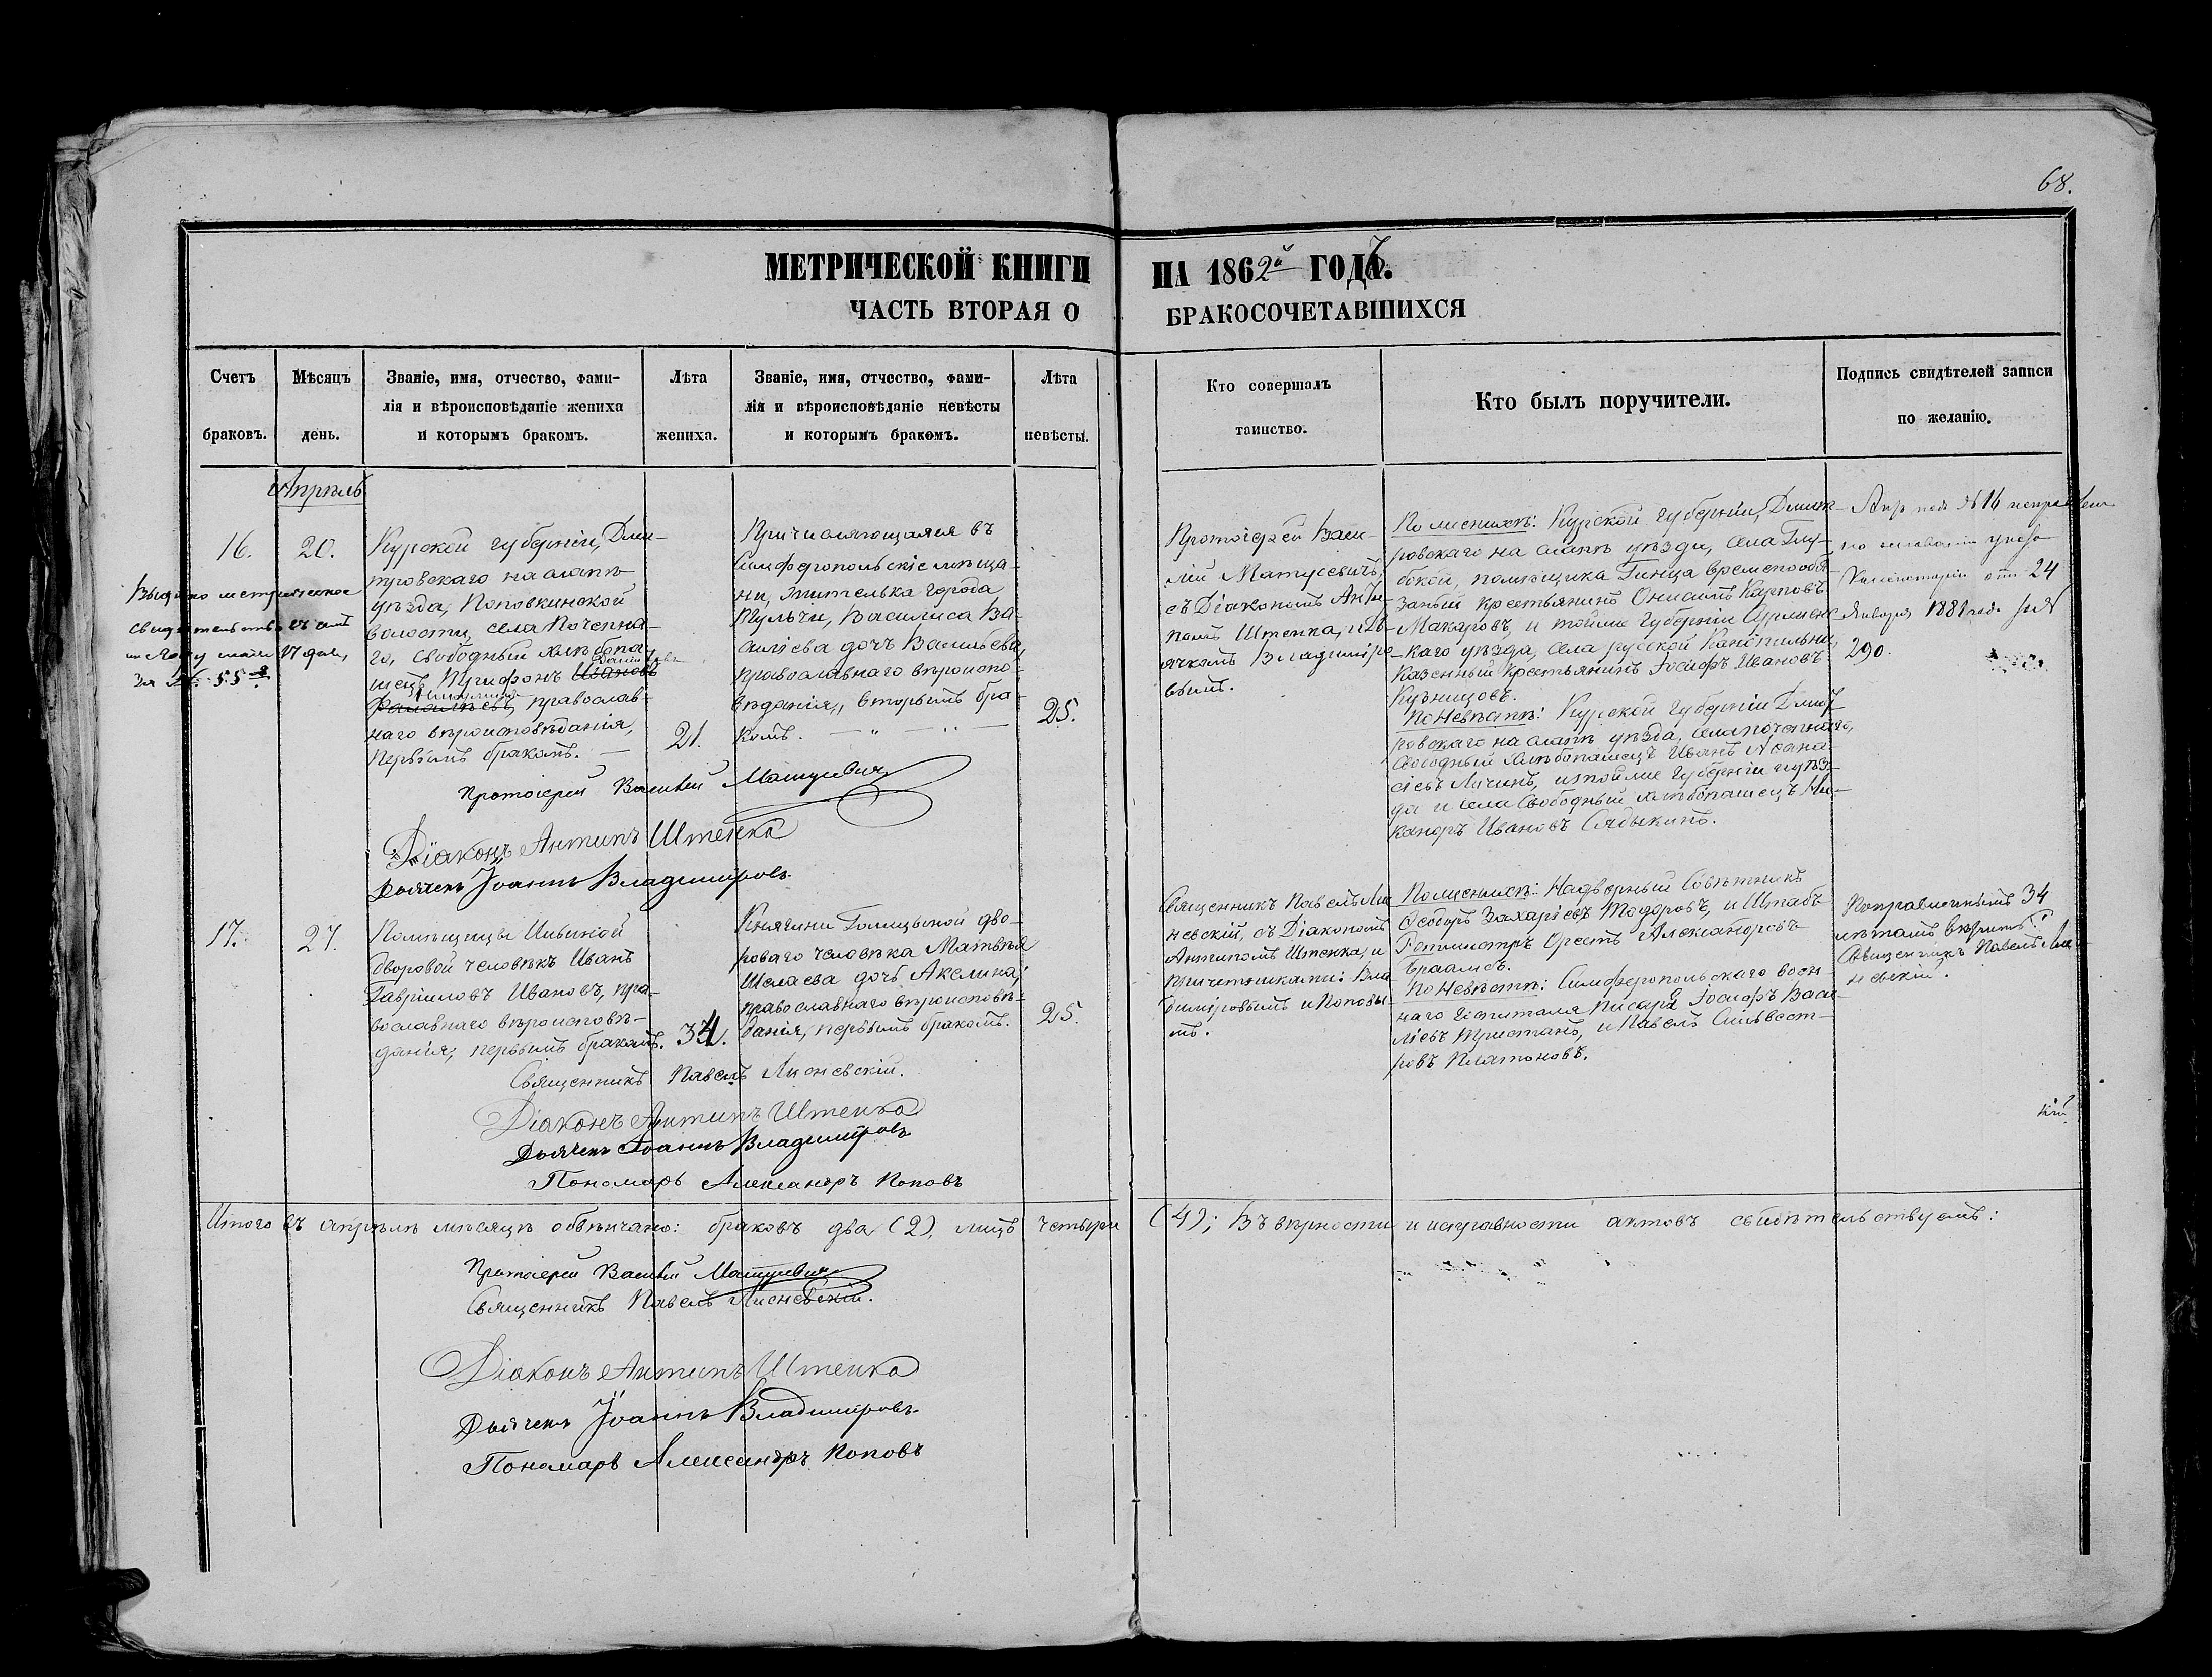 68.
МЕТРИЧЕСКОЙ КНИГИ НА 1862й ГОДЪ.
ЧАСТЬ ВТОРАЯ О БРАКОСОЧЕТАВШИХСЯ
Счетъ
браковъ.
Мѣсяцъ
день.
Званіе, имя, отчество, фами-
лія и вѣроисповѣданіе жениха
и которымъ бракомъ.
Лѣта
жениха.
Званіе, имя, отчество, фами-
лія и вѣроисповѣданіе невѣсты
и которымъ бракомъ.
Лѣта
невѣсты.
Кто совершалъ
таинство.
Кто былъ поручители.
Подпись свидѣтелей записи
по желанію.
Апрѣль
16.
20.
Выдано метрическое
свидѣтельство
17 дня,
за № 55
Курской губерніи, Дми-
тровскаго на свапѣ
уѣзда, Поповкинской
волости, села Почепна-
го, свободный хлѣбопа-
шецъ Трифонъ Ивановъ
православ-
наго вѣроисповѣданія,
первымъ бракомъ. —
21.
Причисляющаяся въ
Симферопольскіе мѣща-
ни, жителька города
Тульчи, Василиса Ва-
силіева дочъ Васильева,
православнаго вѣроиспо-
вѣданія, вторымъ бра-
комъ.
25.
Протоіерей Васи-
лій Матусевичъ,
съ Діакономъ Анти-
помъ Штенка, и Дь-
ячкомъ Владиміро-
вымъ.
По женихѣ: Курской губерніи, Дмит-
ровскаго на свапѣ уѣзда, села Глу-
бокой, помѣщика Гинца временнообя-
занный крестьянинъ Онисимъ Карповъ
Макаровъ, и тойже губерніи
каго уѣзда, села русской
Казенный Крестьянинъ Іосифъ Ивановъ
Кузнецовъ.
По Невѣстѣ: Курской губерніи Дмит-
ровскаго на свапѣ уѣзда, села почепнаго,
свободный хлѣбопашецъ Иванъ Афана-
сіевъ Личинъ, и тойже губерніи и уѣз-
да и села Свободный хлѣбопашецъ Ни-
каноръ Ивановъ Сядыкинъ.
№ 16
по указу
Консисторіи отъ 24
Января 1882 года за №
290.
Протоіерей Василій Матусевичъ
Діаконъ Антипъ Штенка
Дьячекъ Іоаннъ Владиміровъ
17.
27.
Помѣщицы
дворовой человѣкъ Иванъ
Гавріиловъ Ивановъ, пра-
вославнаго вѣроисповѣ-
данія, первымъ бракомъ.
34.
Княгини Голицыной дво-
роваго человѣка Матвѣя
дочъ Акелина,
православнаго вѣроисповѣ-
данія, первымъ бракомъ.
25.
Священникъ Павелъ Лис-
невскій, съ Діакономъ
Антипомъ Штенка, и
причетниками: Вла-
диміровымъ и Поповы-
мъ.
По женихѣ: Надворный Совѣтникъ
Ѳеодоръ Захаріевъ Тодоровъ, и Штабъ
Ротмистръ Орестъ Александровъ
Браамсъ.
По Невѣстѣ: Симферопольскаго воен-
наго Госпиталя Писаря Іосифъ Васи-
ліевъ Тристанъ, и Павелъ Сильвест-
ровъ Платоновъ.
Поправленнымъ 34
лѣтамъ вѣрить:
Священникъ Павелъ Лис-
невскій.
Священникъ Павелъ Лисневскій.
Діаконъ Антипъ Штенка
Дьячекъ Іоаннъ Владиміровъ
Пономарь Александръ Поповъ
Итого въ апрѣлѣ мѣсяцѣ обвѣнчано: браковъ два (2), лицъ четыри (4); Въ вѣрности и исправности актовъ свидѣтельствуемъ:
Протоіерей Василій Матусевичъ
Священникъ Павелъ Лисневскій.
Діаконъ Антипъ Штенка
Дьячекъ Іоаннъ Владиміровъ
Пономарь Александръ Поповъ